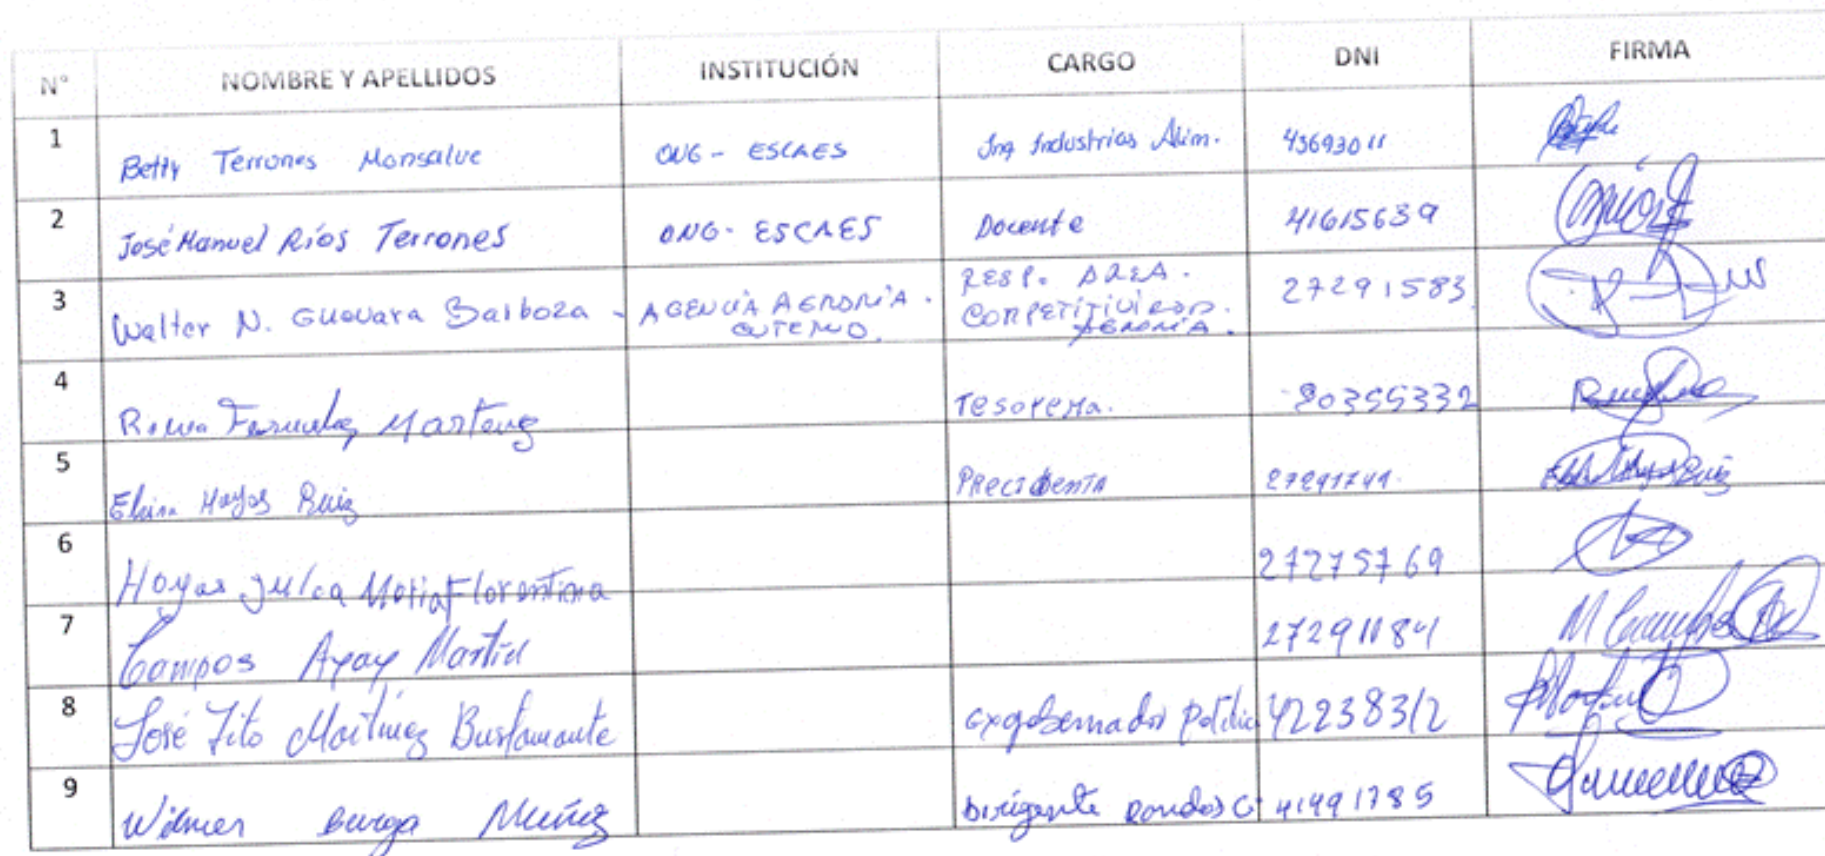 N° NOMBRE Y APELLIDOS INSTITUCIÓN CARGO DNI FIRMA
1 Betty Terrones Monsalve ONG - ESCAES Ing Industrias Alim. 43693011
2 José Manuel Ríos Terrones ONG - ESCAES Docente 41615639
3 Walter N. Guevara Barboza - AGENCIA AGRARIA . CUTERVO. RESP. AREA . COMPETITIVIDAD. AGRARIA . 27291583
4 Fernandez Tesorera. 80355332
5 Hoyos Ruiz Precidenta 27291741.
6 Hoyos Julca Maria Florentina 27275769
7 Campos Ayay Martin 27291184
8 José Tito Martinez Bustamante exgobernador 42238312
9 Wilmer Burga Muñoz Dirigente Rondas C 41491785